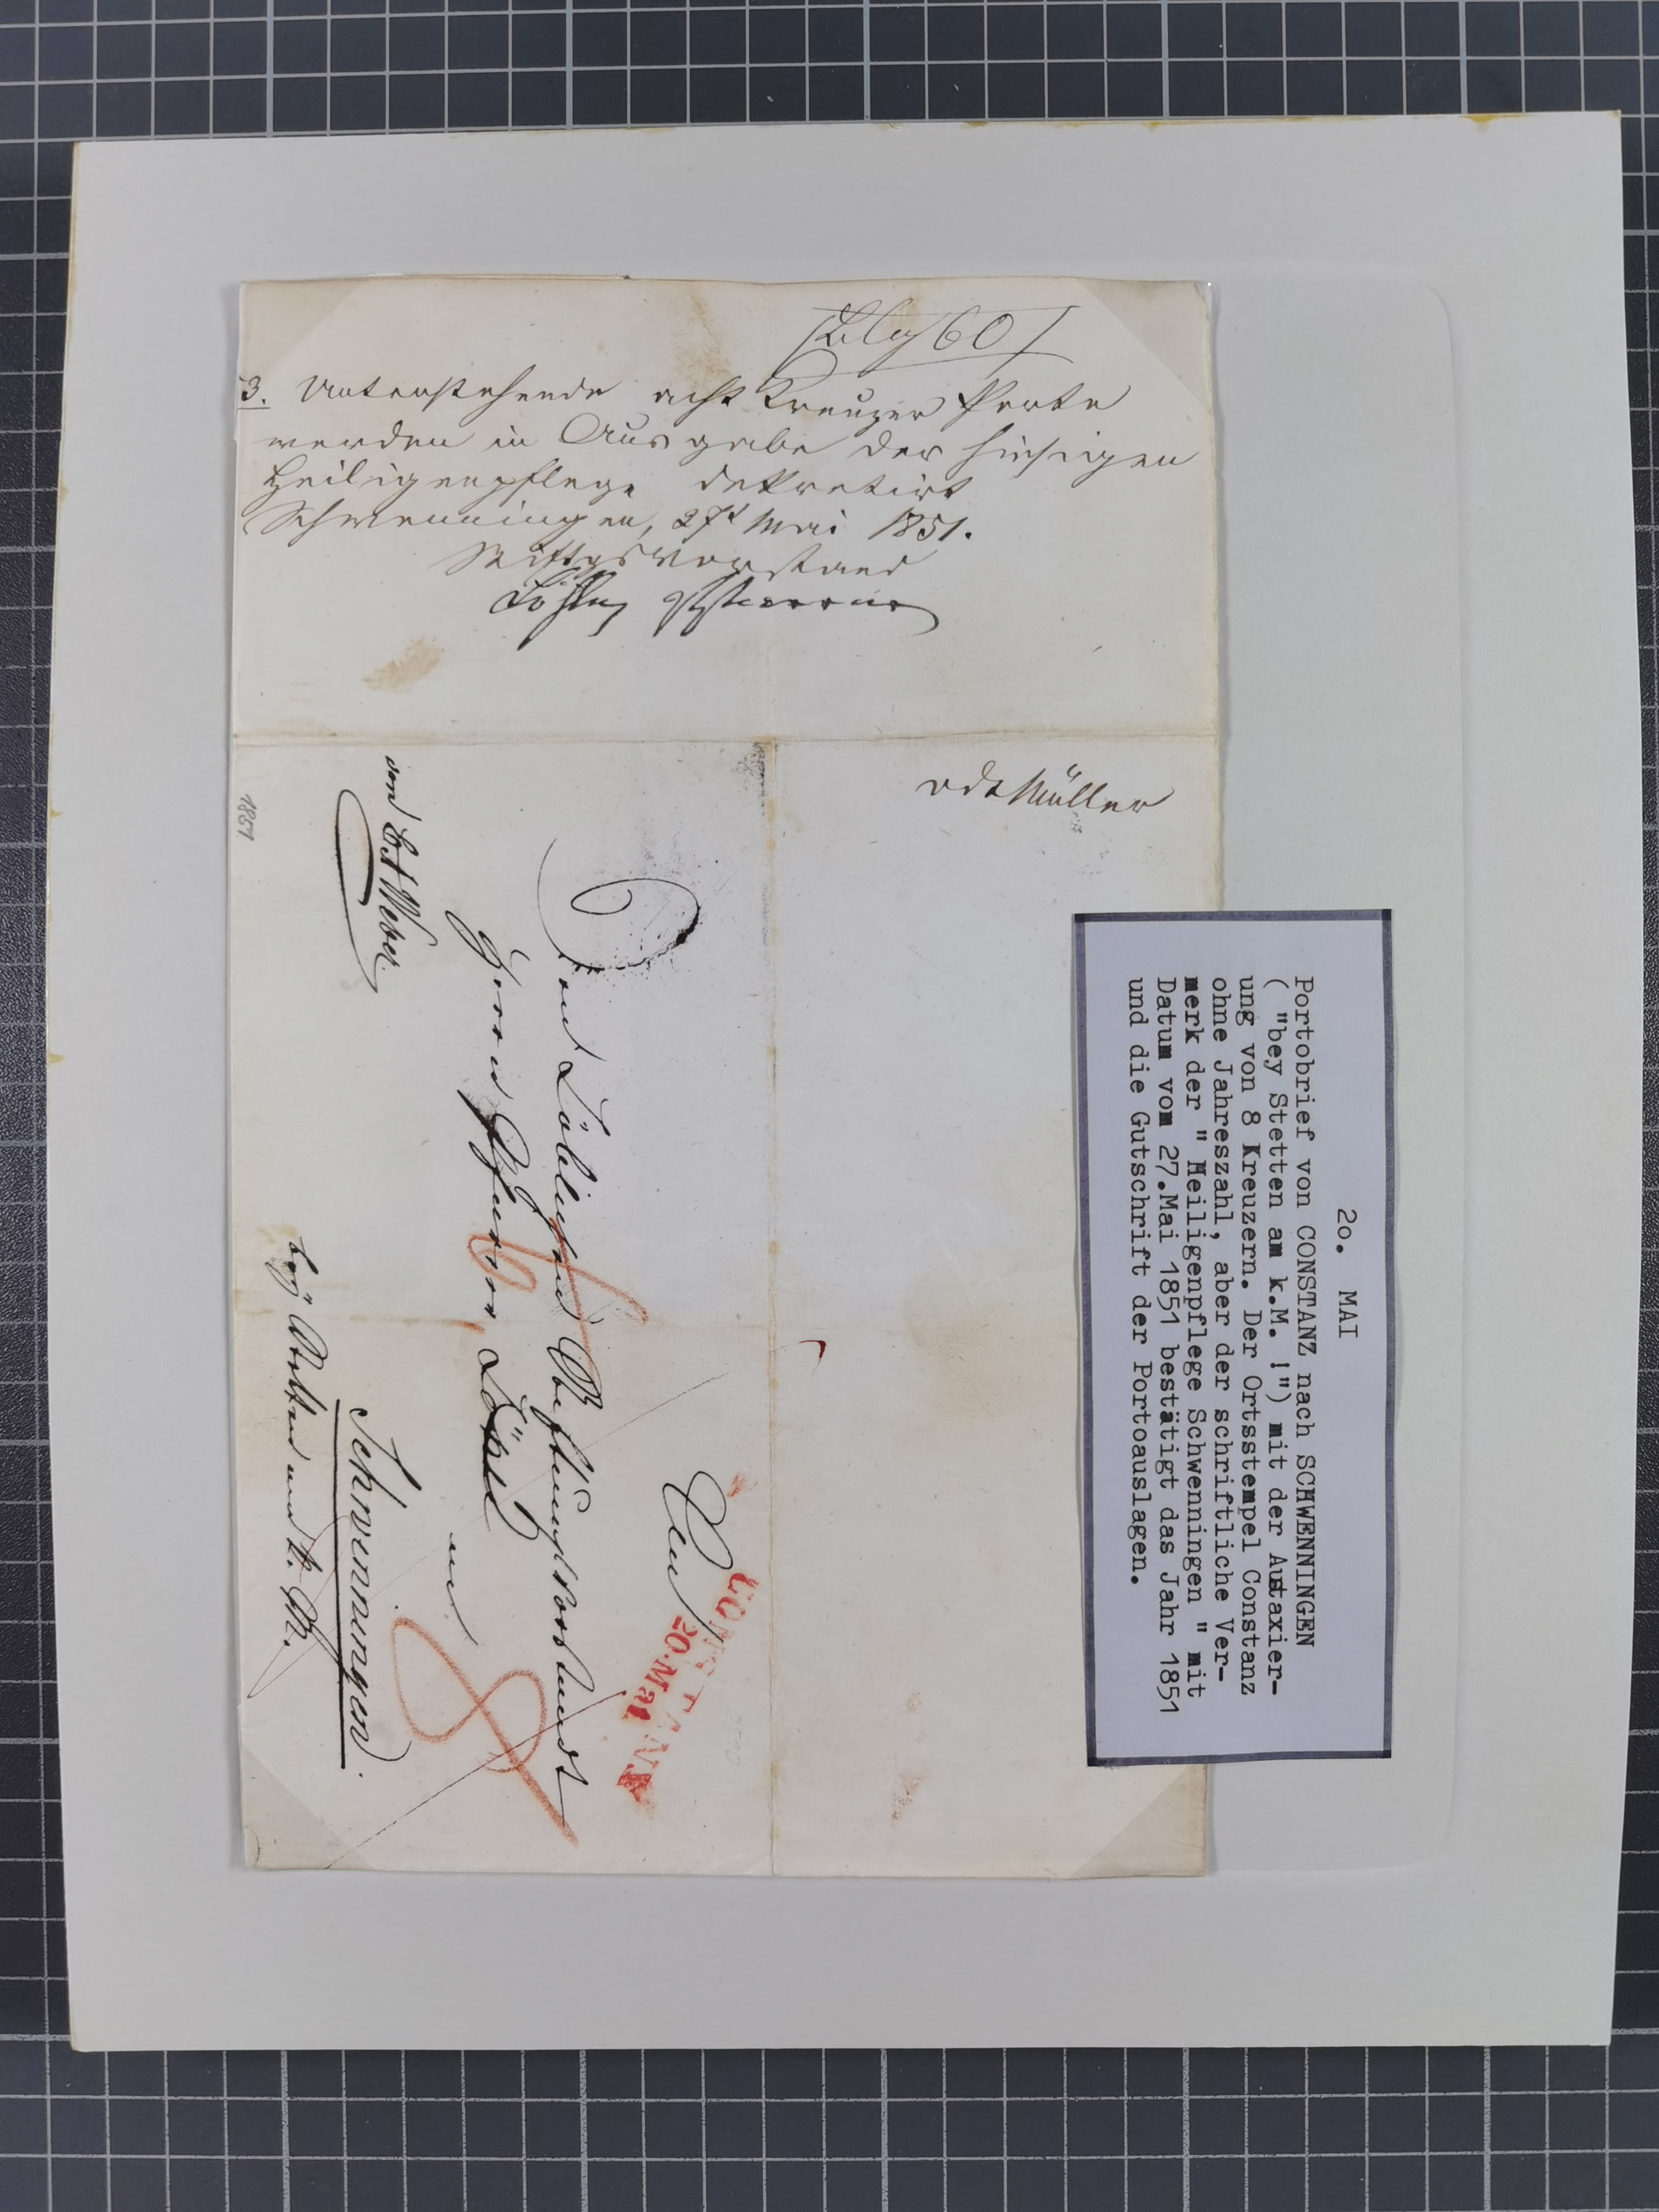 Blg 60
3. Untenstehende acht Kreuzer Porto
werden in Ausgabe der hiesigen
Heiligenpflege dekretirt
Schwenningen, 27t Mai 1851.
Stiftgsvorstand
vdt Müller
An
CONSTANZ
20. Mai
den Löblichen Stiftungsvorstandt
Herrn Pfarrer
in
8
Schwenningen.
bey Stetten am k. M.
von Weber
1851
20. MAI
Portobrief von CONSTANZ nach SCHWENNINGEN
( "bey Stetten am k.M. !") mit der Austaxier-
ung von 8 Kreuzern. Der Ortsstempel Constanz
ohne Jahreszahl, aber der schriftliche Ver-
merk der " Heiligenpflege Schwenningen " mit
Datum vom 27.Mai 1851 bestätigt das Jahr 1851
und die Gutschrift der Portoauslagen.